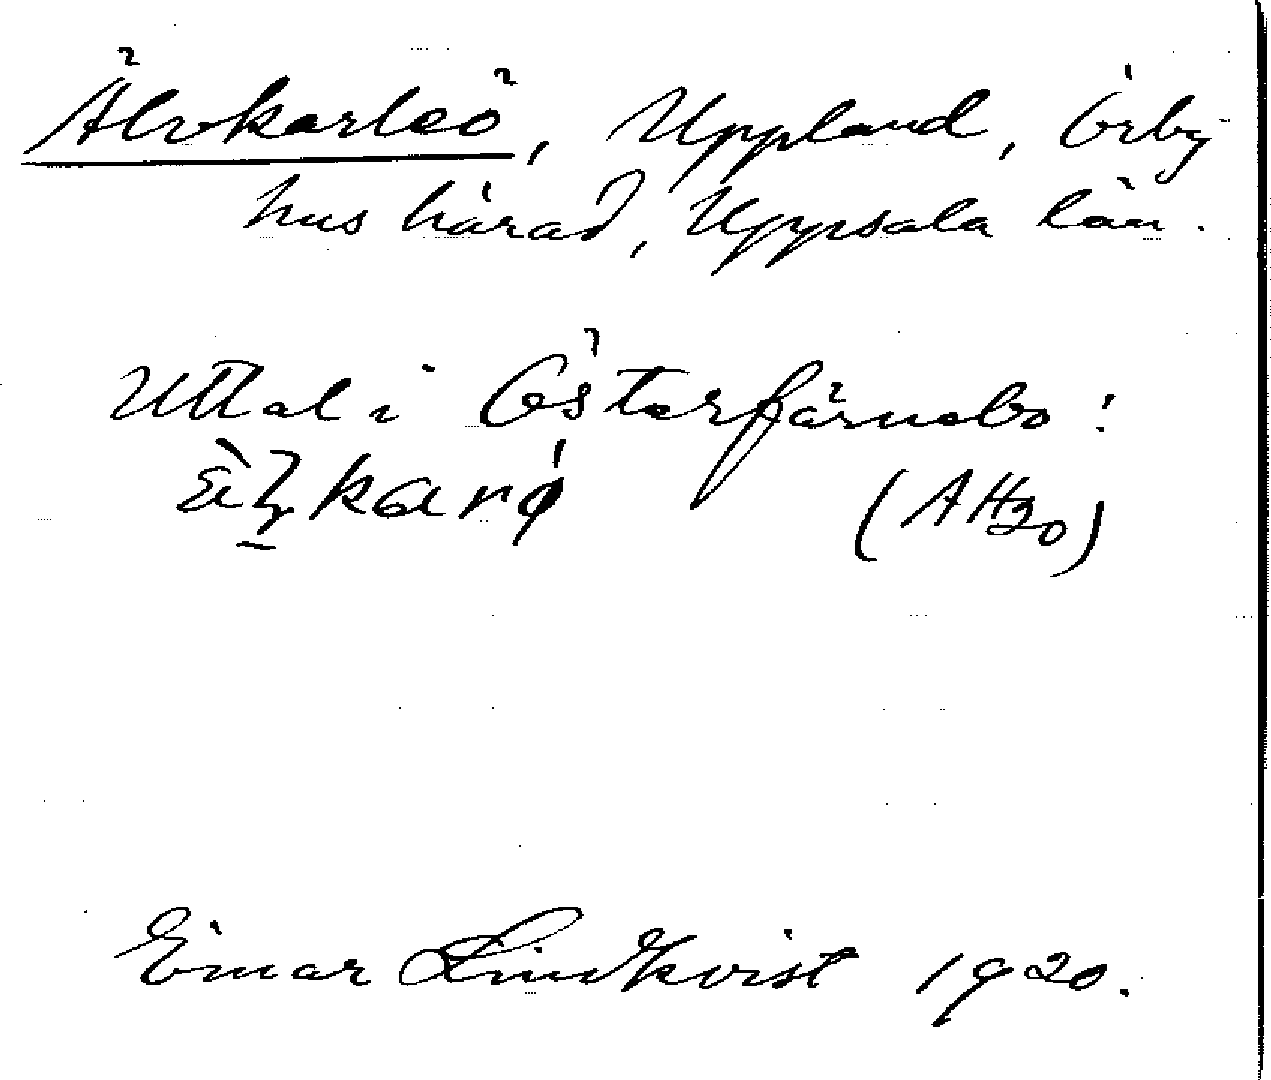 Älvkarleö, Uppland, Örby
hus härad, Uppsala län.
Uttal i Österfärnebo:
(AH20)
Einar Lindkvist 1920.